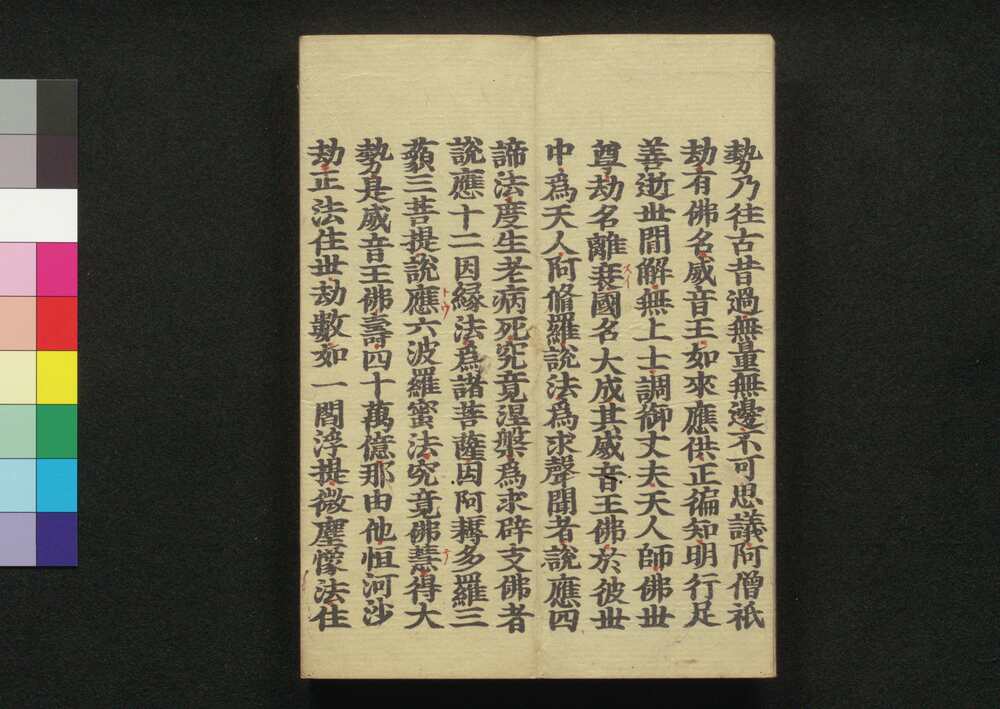 勢乃往古昔過無量無邊不可思議阿僧祇
劫有佛名威音王如來應供正徧知明行足
善逝世間解無上士調御丈夫天人師佛世
尊劫名離衰國名大成其威音王佛於彼世
スイ
中爲天人阿脩羅說法爲求聲聞者說應四
諦法度生老病死究竟涅槃爲求辟支佛者
說應十二因縁法爲諸菩薩因阿耨多羅三
藐三菩提說應六波羅蜜法究竟佛慧得大
勢是威音王佛壽四十萬億那由他恒河沙
劫正法住世劫數如一閻浮提微塵像法住